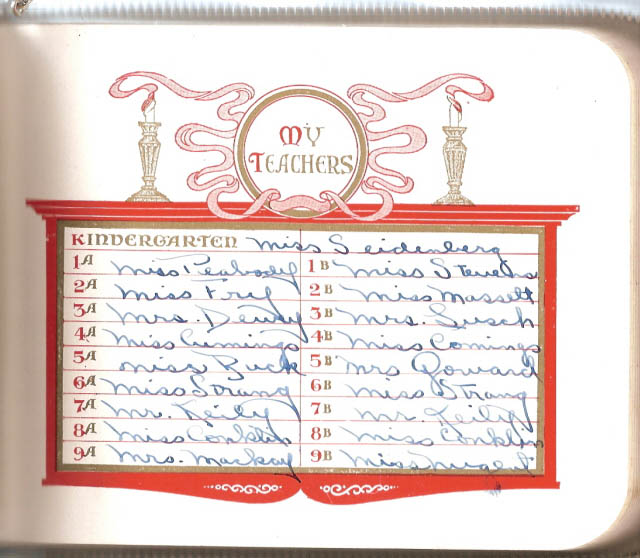 MY
TEACHERS
KINDERGARTEN Miss Seidenberg
1A Miss Peabody 1B Miss Stevens
2A Miss Fry 2B Miss Massett
3A Mrs. Dewey 3B Mrs. Lusch
4A Miss Cumings 4B Miss Comings
5A Miss Buck 5B Mrs Goward
6A Miss Strang 6B Miss Strang
7A Mr. Keily 7B Mr. Keily
8A Miss Conklin 8B Miss Conklin
9A Mrs. Mackay 9B Miss Nugent